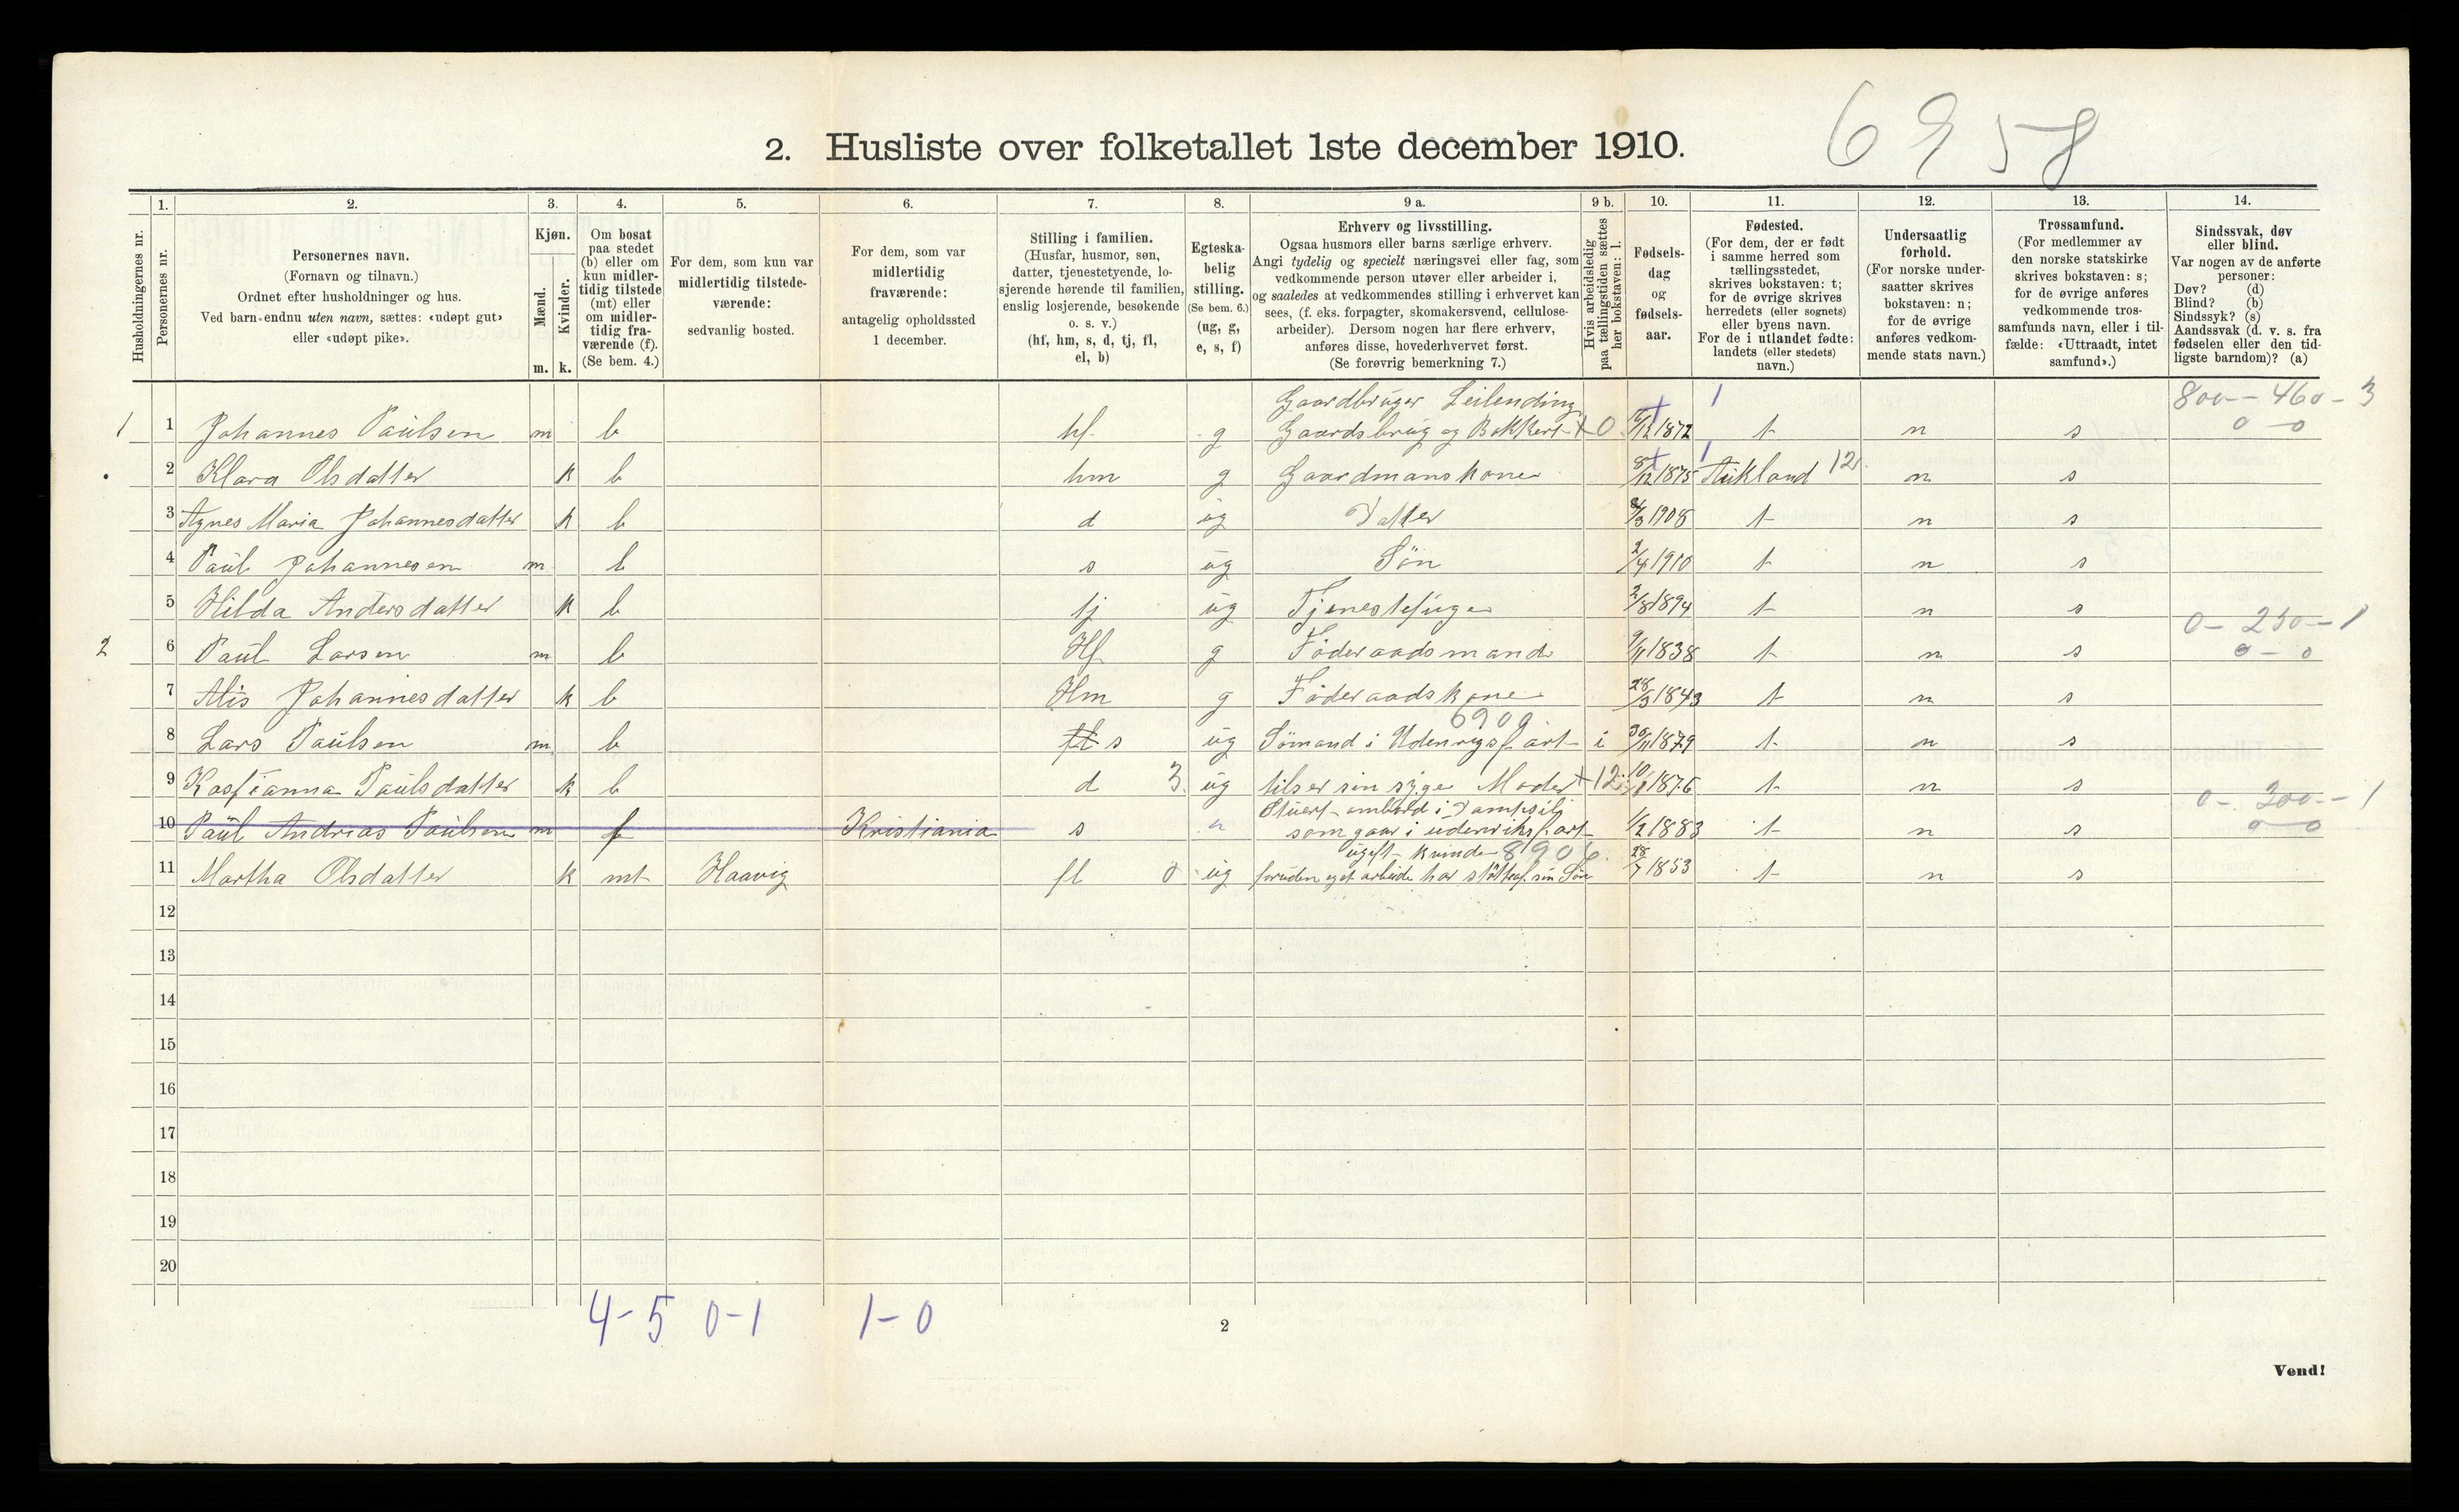 6958
2. Husliste over folketallet 1ste december 1910.
1. 2. 3. 4. 5. 6. 7. 8. 9 a. 9 b. 10. 11. 12. 13. 14.
Husholdningernes nr.
Personernes nr.
Personernes navn.
(Fornavn og tilnavn.)
Ordnet efter husholdninger og hus.
Ved barn endnu uten navn, sættes: «udøpt gut»
eller «udøpt pike».
Kjøn.
Mænd.
Kvinder.
m. k.
Om bosat
paa stedet
(b) eller om
kun midler-
tidig tilstede
(mt) eller
om midler-
tidig fra-
værende (f).
(Se bem. 4.)
For dem, som kun var
midlertidig tilstede-
værende:
sedvanlig bosted.
For dem, som var
midlertidig
fraværende:
antagelig opholdssted
1 december.
Stilling i familien.
(Husfar, husmor, søn,
datter, tjenestetyende, lo-
sjerende hørende til familien,
enslig losjerende, besøkende
o. s. v.)
(hf, hm, s, d, tj, fl,
el, b)
Egteska-
belig
stilling.
(Se bem. 6.)
(ug, g,
e, s, f)
Erhverv og livsstilling.
Ogsaa husmors eller barns særlige erhverv.
Angi tydelig og specielt næringsvei eller fag, som
vedkommende person utøver eller arbeider i,
og saaledes at vedkommendes stilling i erhvervet kan
sees, (f. eks. forpagter, skomakersvend, cellulose-
arbeider). Dersom nogen har flere erhverv,
anføres disse, hovederhvervet først.
(Se forøvrig bemerkning 7.)
Hvis arbeidsledig
paa tællingstiden sættes
her bokstaven: l.
Fødsels-
dag
og
fødsels-
aar.
Fødested.
(For dem, der er født
i samme herred som
tællingsstedet,
skrives bokstaven: t;
for de øvrige skrives
herredets (eller sognets)
eller byens navn.
For de i utlandet fødte:
landets (eller stedets)
navn.)
Undersaatlig
forhold.
(For norske under-
saatter skrives
bokstaven: n;
for de øvrige
anføres vedkom-
mende stats navn.)
Trossamfund.
(For medlemmer av
den norske statskirke
skrives bokstaven: s;
for de øvrige anføres
vedkommende tros-
samfunds navn, eller i til-
fælde: «Uttraadt, intet
samfund».)
Sindssvak, døv
eller blind.
Var nogen av de anførte
personer:
Døv? (d)
Blind? (b)
Sindssyk? (s)
Aandssvak (d. v. s. fra
fødselen eller den tid-
ligste barndom)? (a)
Gaardbruger Leilending 1 800 - 460 - 3
1 1 Johannes Paulsen m b hf g Gaardsbrug og + 0 /12 1872 t n s 0 - 0
2 Klara Olsdatter k b hm g Gaardmanskone 8/12 1875 12 n s
3 Agnes Maria Johannesdatter k b d ug Datter /3 1908 t n s
4 Paul Johannesen m b s ug Sön 2/4 1910 t n s
5 Hilda Andersdatter k b tj ug 2/8 1894 t n s
0 - 250 - 1
2 6 Paul Larsen m b Hf g Föderaadsmand 9/11 1838 t n s 0 - 0
7 Alis Johannesdatter k b Hm g Föderaadskone 28/3 1843 t n s
6909
8 Lars Paulsen m b s ug Sömand i Udenrigsfart i 30/11 1879 t n s
9 Paulsdatter k b d 3 ug tilser sin syge Moder + 12 10/ 1876 t n s
Stuert ombord i Dampsib 0 - 300 - 1
10 Paul Andrias Paulsen m f Kristiania s som gaar i udenriksfart 1/2 1883 t n s 0 0
ugift kvinde 8906
11 Martha Olsdatter k mt Haavig fl 0 ug foruden eget arbeide har støtte af sin Sön 28/7 1853 t n s
12
13
14
15
16
17
18
19
20
4-5 0-1 1-0
2
Vend!